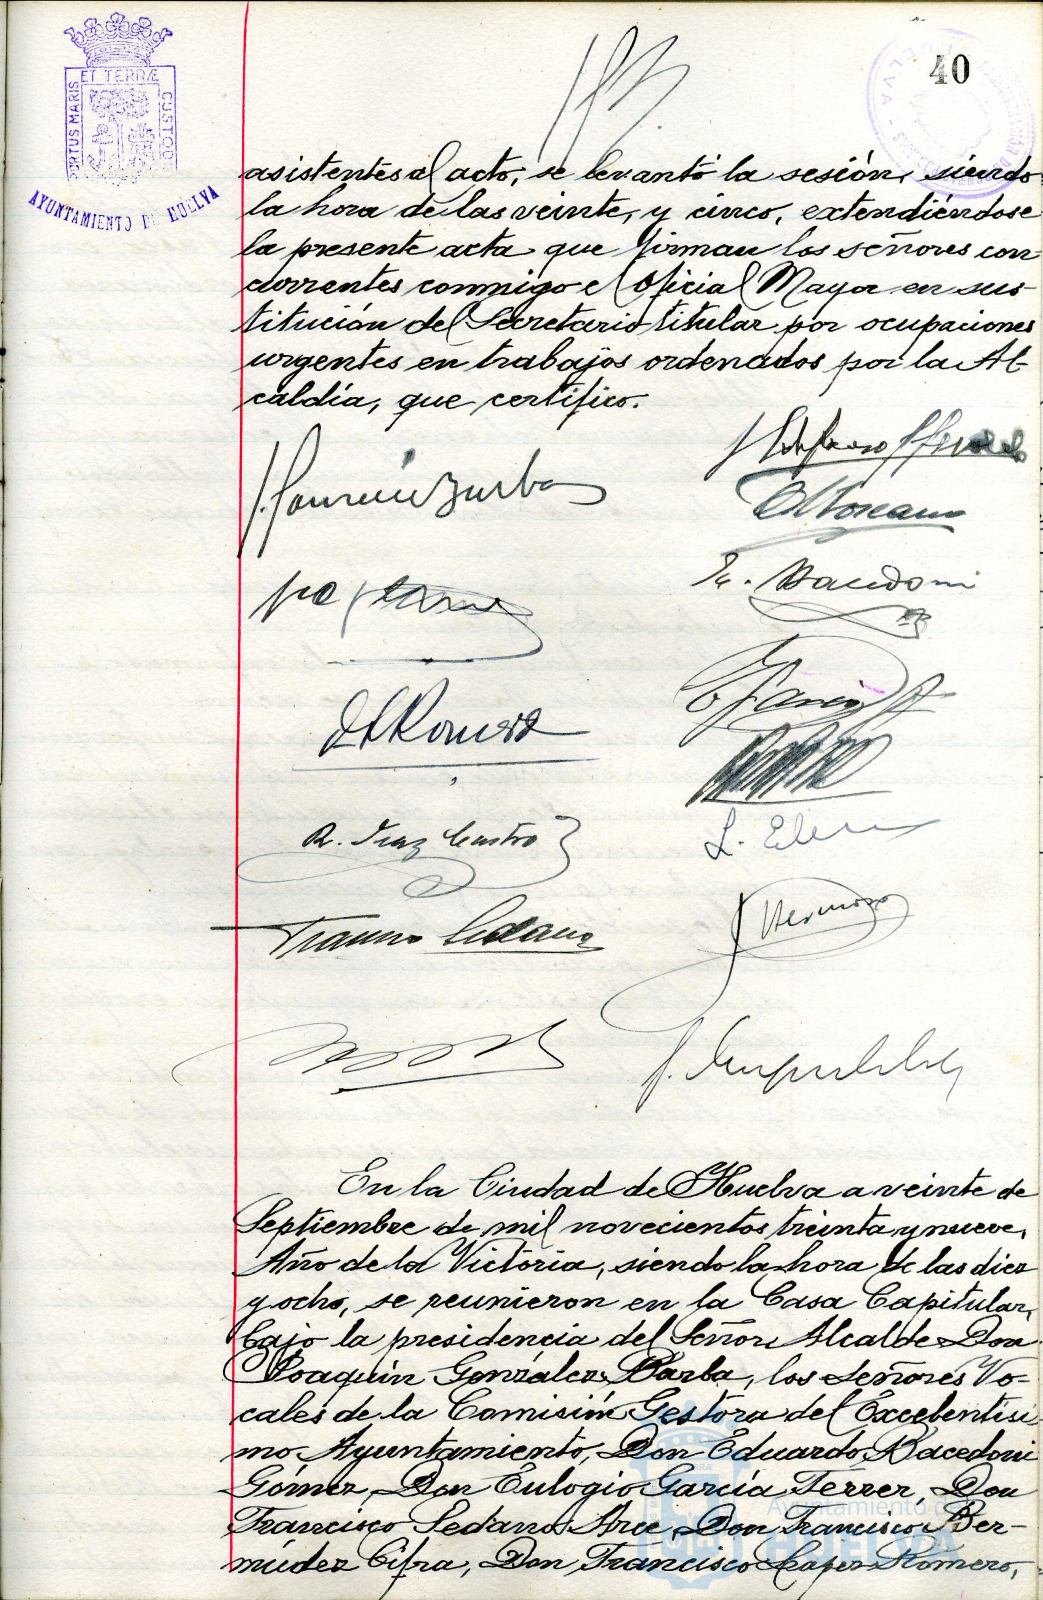 40
ET TERRÆ
PORTUS MARIS
CUSTODI
AYUNTAMIENTO DE HUELVA
asistentes al acto, se levantó la sesión, siendo
la hora de las veinte, y cinco, extendiéndose
la presente acta que firman los señores con
currentes conmigo el Oficial Mayor en sus
titución del Secretario titular por ocupaciones
urgentes en trabajos ordenados por la Al-
caldía, que certifico.
R. Diaz Castro
L.
Hermoso
En la Ciudad de Huelva a veinte de
Septiembre de mil novecientos treinta y nueve,
Año de la Victoria, siendo la hora de las diez
y ocho, se reunieron en la Casa Capitular,
bajo la presidencia del Señor Alcalde Don
Joaquin González Barba, los señores Vo-
cales de la Comisión Gestora del Excelentísi
mo Ayuntamiento, Don Eduardo Macedoni
Gómez, Don Eulogio García Ferrer, Don
Francisco Sedano Arce, Don Francisco Ber-
múdez Cifra, Don Francisco Romero,
Ayuntamiento de
HUELVA